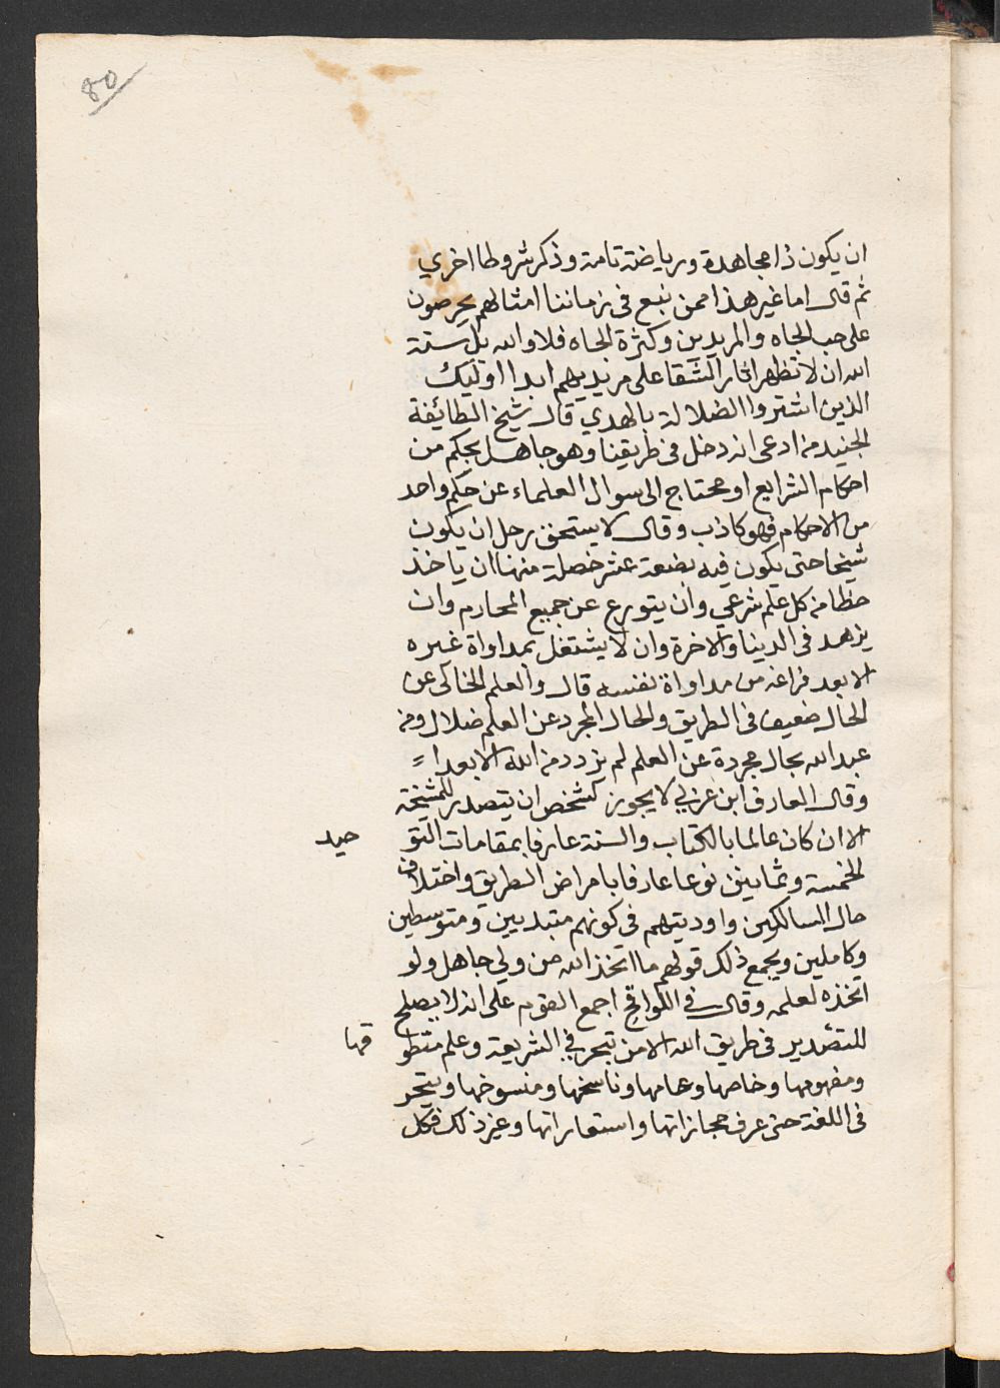 80
ان يكون ذا مجاهدة ورياضة تامة وذكر شروطا اخري
ثم قال اما غير هذا ممن نبع في زماننا امثالهم يحرصون
على حب الجاه والمريدين وكثرة الجاه فلا والله بل سنة
الله ان لا تظهر اثار الشقا على مريديهم ابدا اوليك
الذين اشتروا الضلالة بالهدي قال شيخ الطائفة
الجنيد من ادعى انه دخل في طريقنا وهو جاهل بحكم من
احكام الشرايع او محتاج الى سوال العلماء عن حكم واحد
من الاحكام فهو كاذب وقال لا يستحق رجل ان يكون
شيخا حتى يكون فيه بضعة عشر خصلة منها ان ياخذ
حظا من كل علم شرعي وان يتورع عن جميع المحارم وان
يزهد في الدنيا والاخرة وان لا يشتغل بمداواة غيره
الا بعد فراغه من مداواة نفسه قال والعلم الخالي عن
الحال ضعيف في الطريق والحال المجرد عن العلم ضلال ومن
عبد الله بحال مجردة عن العلم لم يزدد من الله الا بعدا
وقال العارف ابن عربي لا يجوز لشخص ان يتصدر للمشيخة
الا ان كان عالما بالكتاب والسنة عارفا بمقامات التو حيد
الخمسة وثمانين نوعا عارفا بامراض الطريق واختلاف
حال السالكين واوديتهم في كونهم مبتديين ومتوسطين
وكاملين ويجمع ذلك قولهم ما اتخذ الله من ولي جاهل ولو
اتخذه لعلمه وقال في اللواقح اجمع القوم على انه لا يصلح
للتصدير في طريق الله الا من تبحر في الشريعة وعلم منطو قها
ومفهومها وخاصها وعامها وناسخها ومنسوخها وتبحر
في اللغة حتى عرف مجازاتها واستعاراتها وغير ذلك فكل